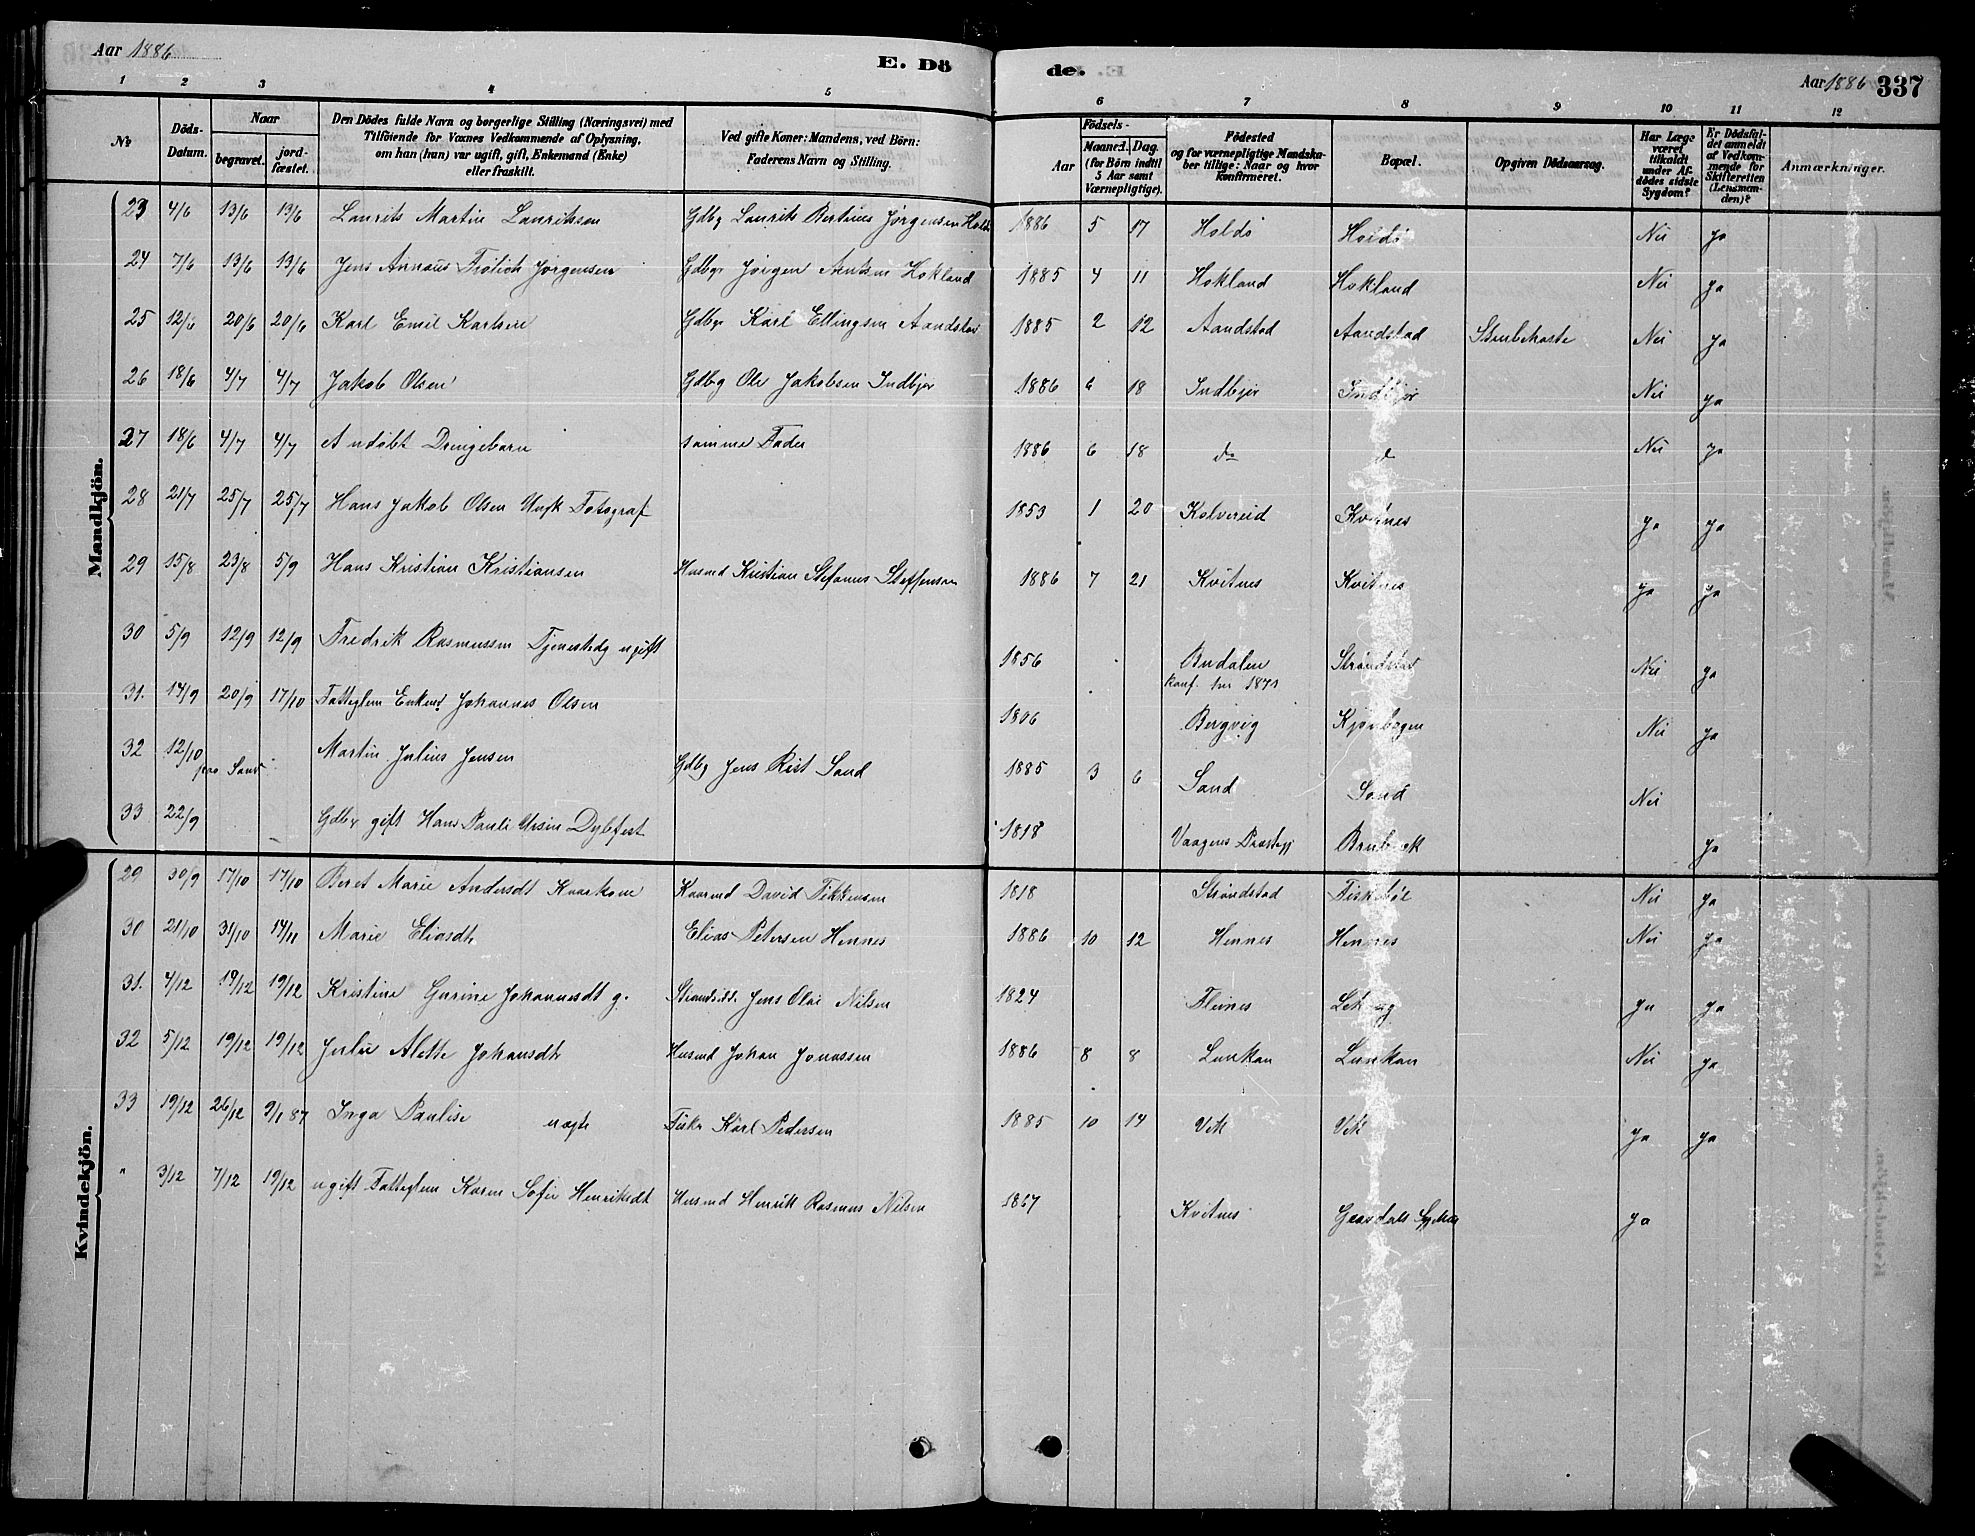 Aar 1886
E. Dö
de.
Aar 1886 337
1 2 3 4 5 6 7 8 9 10 11 12
No
Döds-Datum.
Naar
begravet.
jord-fæstet.
Den Dödes fulde Navn og borgerlige Stilling (Næringsvei) med
Tilföiende for Voxnes Vedkommende af Oplysning,
om han (hun) var ugift, gift, Enkemand (Enke)
eller fraskilt.
Ved gifte Koner: Mandens, ved Börn:
Faderens Navn og Stilling.
Födsels-
Aar
Maaned. Dag.
(for Börn indtil
5 Aar samt
Værnepligtige).
Födested
og for værnepligtige Mandska-
ber tillige: Naar og hvor
konfirmeret.
Bopæl.
Opgiven Dödsaarsag.
Har Læge
været
tilkaldt
under Af-
dödes sidste
Sygdom?
Er Dödsfal-
det anmeldt
af Vedkom-
mende for
Skifteretten
(Lensman-
den)?
Anmærkninger.
Mandkjön.
23 4/6 13/6 13/6 Laurits Martin Lauritsen Gdbg Laurits Bertines Jørgensen 1886 5 17 Holdö Holdö Nei Ja
24 7/6 13/6 13/6 Jens Frölich Jørgensen Gdbgr Jørgen Hokland 1885 4 11 Hokland Hokland Nei Ja
25 12/6 20/6 20/6 Karl Emil Karlsen Gdbgr Karl Ellingsen Aandstad 1885 2 12 Aandstad Aandstad Strubehoste Nei Ja
26 18/6 4/7 4/7 Jakob Olsen Gdbg Ole Jakobsen Indbjor 1886 6 18 Indbjor Indbjor Nei Ja
27 18/6 4/7 4/7 Et udøbt Drengebarn samme Fader 1886 6 18 do d Nei Ja
28 21/7 25/7 25/7 Hans Jakob Olsen Ungk Fotograf 1853 1 20 Kolvereid Kvitnes Ja Ja
29 15/8 23/8 5/9 Hans Kristian Kristiansen Husmd Kristian Stefanus Steffensen 1886 7 21 Kvitnes Kvitnes Ja Ja
30 5/9 12/9 12/9 Fredrik Rasmussen Tjenestedg ugift 1856 Budalen Strøndstad Nei Ja
konf. her 1871
31. 14/9 20/9 17/10 Fatteglem Enkem. Johannes Olsen 1806 Bergvig Kjønbogen Nei Ja
32 12/10 paa Sand Martin Julius Jensen Gdbg Jens Rist Sand 1885 3 6 Sand Sand Nei
33 22/9 Gdbr gift Hans Pauli Ursin Dybfest 1818 Vaagens Præstegj Brubæk Ja
Kvindekjön.
29 30/9 17/10 17/10 Beret Marie Andersdt Kaarkone Kaarmd David Tikkensen 1818 Strøndstad Fiskebøl Nei Ja
30 21/10 31/10 14/11 Marie Eliasdtr Elias Petersen Hennes 1886 10 12 Hennes Hennes Nei Ja
31. 4/12 19/12 19/12 Kristine Gurine Johannesdt g. Strandsidd. Jens Olai Nilsen 1824 Fleines Ja Ja
32 5/12 19/12 19/12 Julie Alette Johansdtr Husmd Johan Jonassen 1886 8 8 Lunkan Lunkan Nei Ja
33 19/12 26/12 9/1 87 Inga Pauline uægte Fisk. Karl Pedersen 1885 10 14 Vik Vik Ja Ja
" 3/12 7/12 19/12 ugift Fatteglem Karen Sofie Henriksdt Husmd Henrik Rasmus Nilsen 1867 Kvitnes Ja